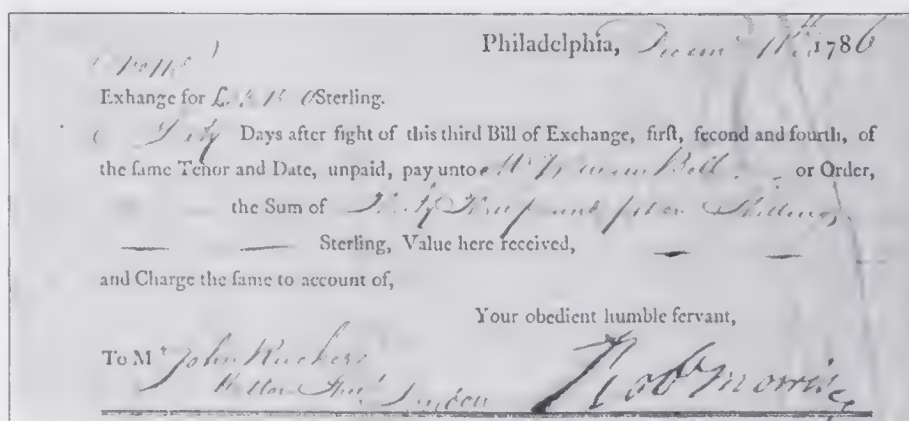 Philadelphia, Decem 1786
Exhange for £ Sterling.
Days after ſight of this third Bill of Exchange, firſt, ſecond and fourth, of
the ſame Tenor and Date, unpaid, pay unto Bell or Order,
the Sum of and Shillings
Sterling, Value here received,
and Charge the ſame to account of,
Your obedient humble ſervant,
To Mr John Rucker
London
Rob Morris